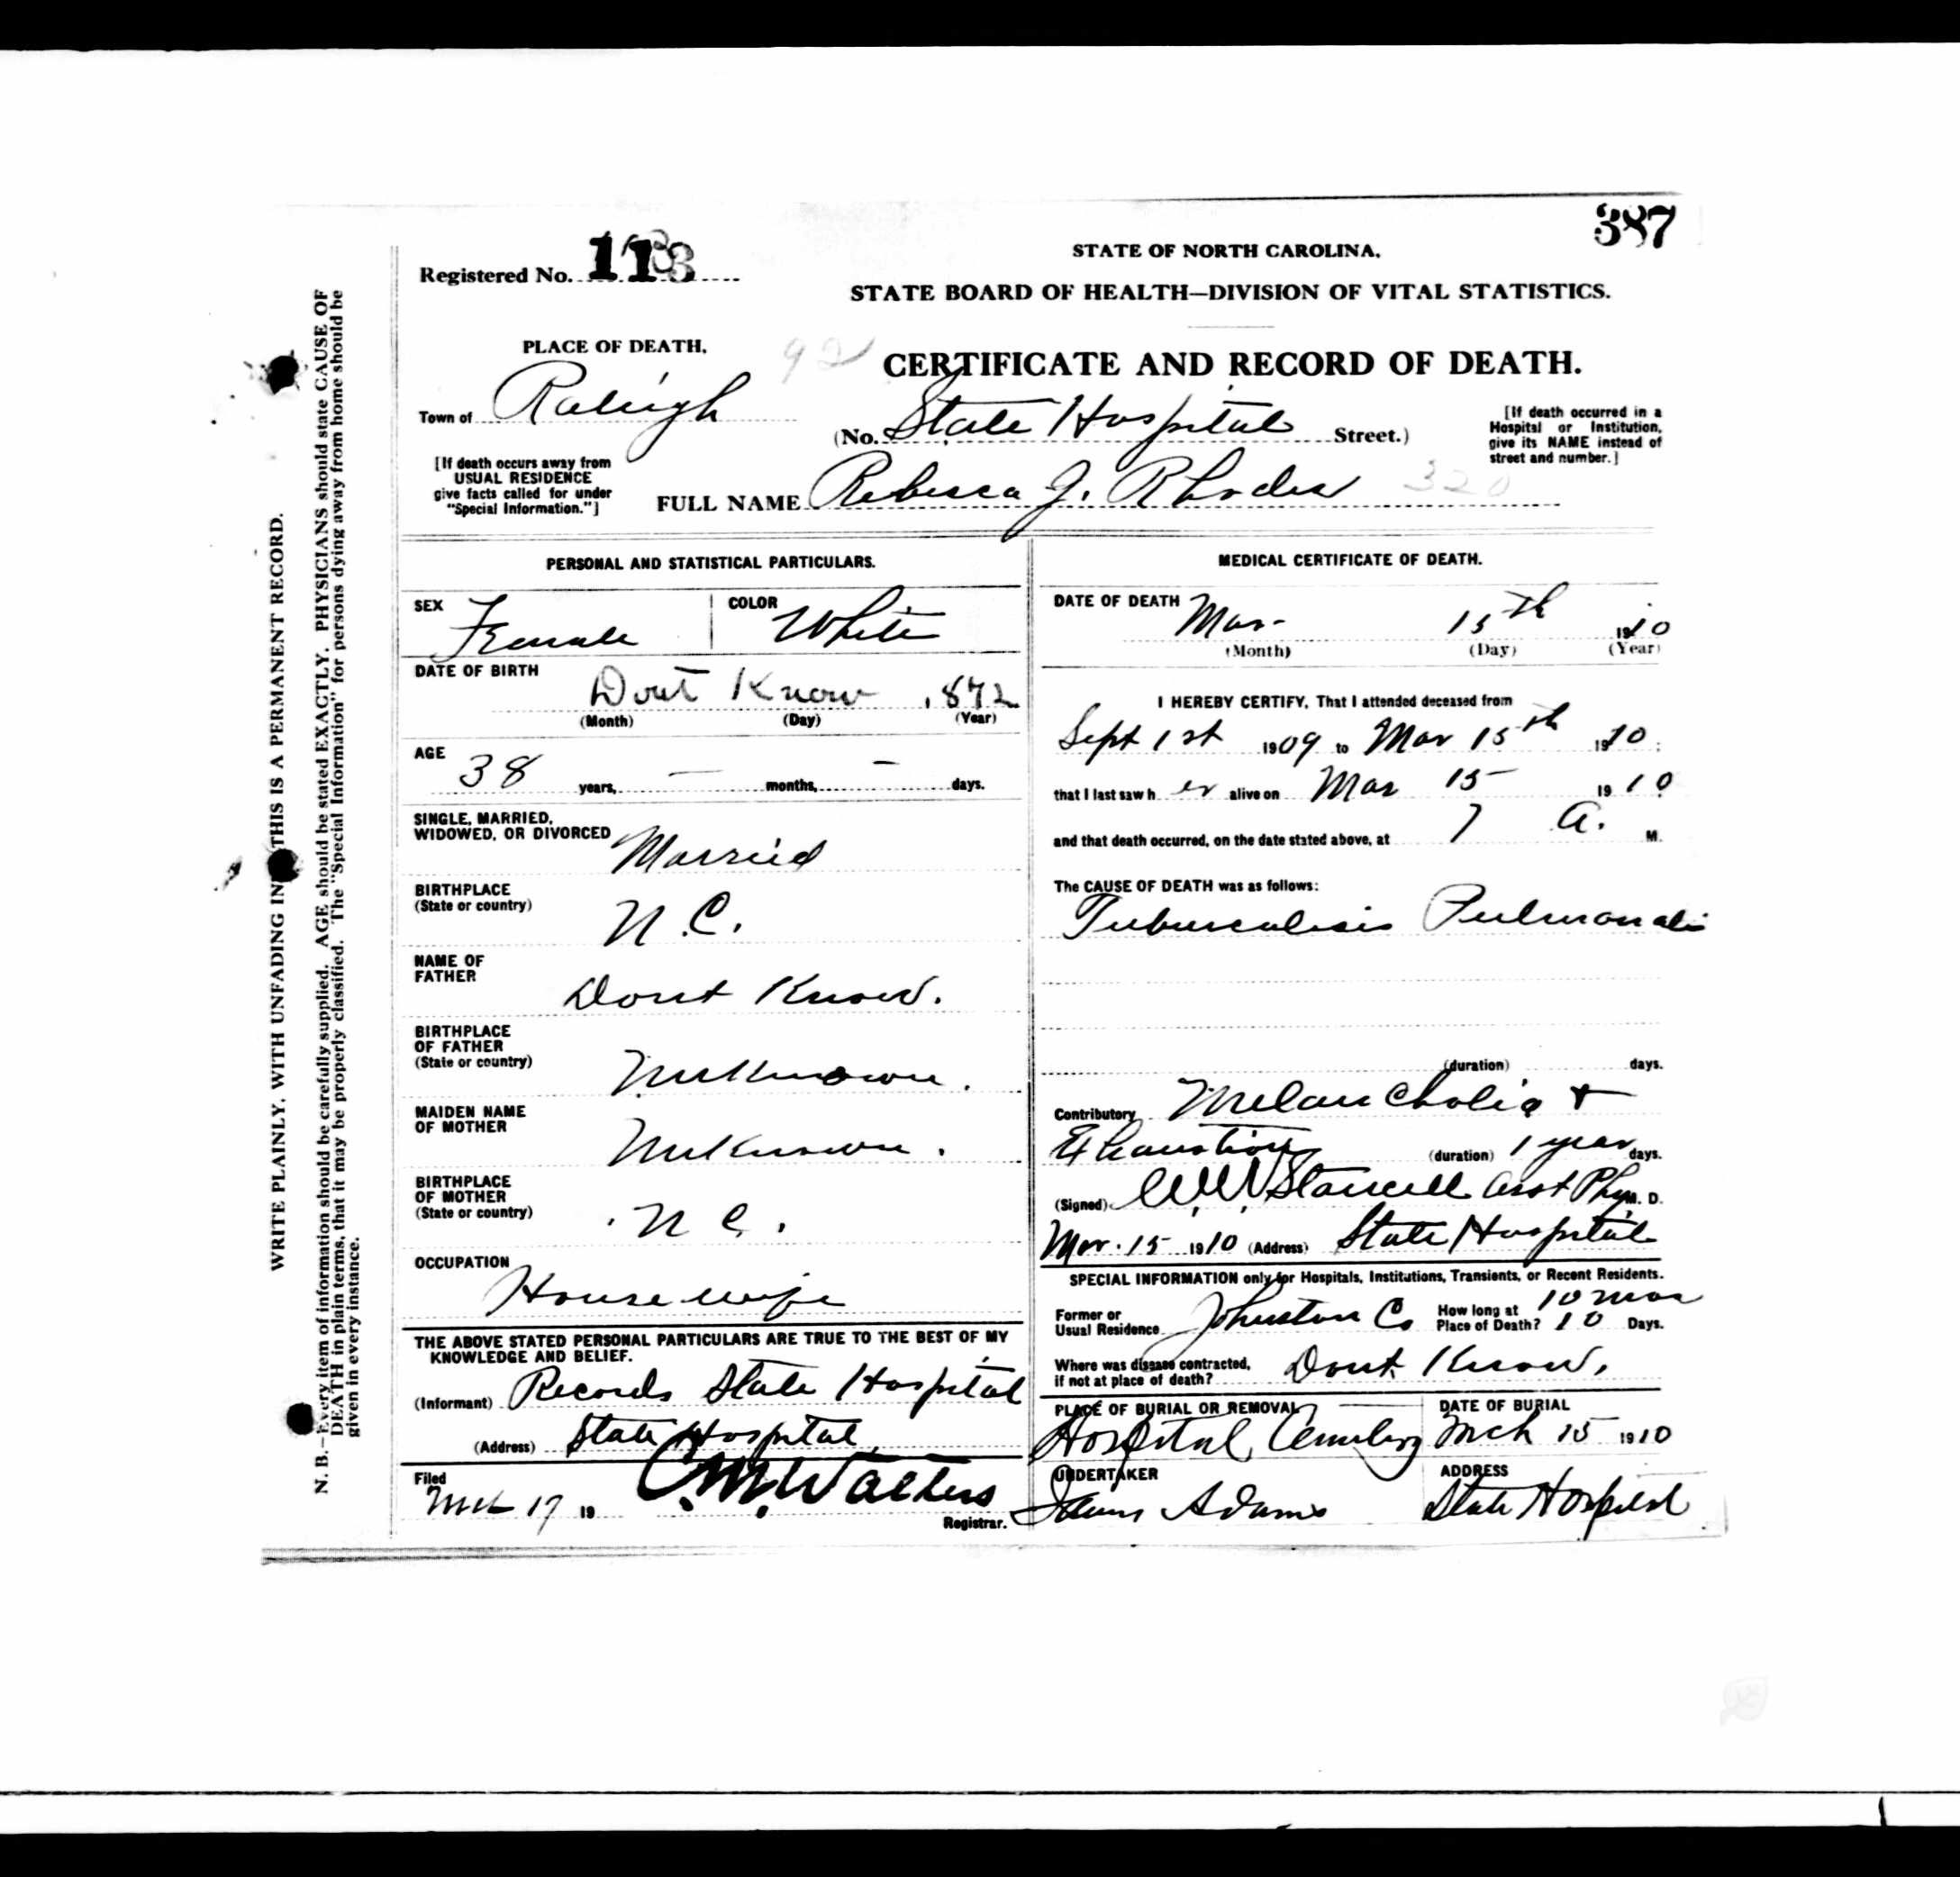 387
Registered No. 113
STATE OF NORTH CAROLINA.
STATE BOARD OF HEALTH—DIVISION OF VITAL STATISTICS.
PLACE OF DEATH,
92
CERTIFICATE AND RECORD OF DEATH.
Town of Raleigh
(No. State Hospital Street.)
[If death occurred in a
Hospital or Institution,
give its NAME instead of
street and number.]
[If death occurs away from
USUAL RESIDENCE
give facts called for under
"Special Information."]
FULL NAME Rebecca J. Rhodes 320
PERSONAL AND STATISTICAL PARTICULARS.
SEX Female
COLOR White
DATE OF BIRTH Dont Know , 1872
(Month) (Day) (Year)
AGE 38 years, — months, — days.
SINGLE, MARRIED,
WIDOWED, OR DIVORCED Married
BIRTHPLACE
(State or country) N.C.
NAME OF
FATHER Dont Know.
BIRTHPLACE
OF FATHER
(State or country) Unknown.
MAIDEN NAME
OF MOTHER Unknown.
BIRTHPLACE
OF MOTHER
(State or country) N C.
OCCUPATION
House wife
THE ABOVE STATED PERSONAL PARTICULARS ARE TRUE TO THE BEST OF MY
KNOWLEDGE AND BELIEF.
(Informant) Records State Hospital
(Address) State Hospital
Filed
Mch 17 19 C.M. Walters
Registrar.
MEDICAL CERTIFICATE OF DEATH.
DATE OF DEATH Mar- 15th 1910
(Month) (Day) (Year)
I HEREBY CERTIFY, That I attended deceased from
Sept 1st 1909 to Mar 15th 1910;
that I last saw h er alive on Mar 15- 1910
and that death occurred, on the date stated above, at 7 A. M.
The CAUSE OF DEATH was as follows:
Tuberculosis Pulmonalis
(duration) days.
Contributory Melancholia +
Exhaustion (duration) 1 year days.
(Signed) W.W. Stancell Asst Phy M. D.
Mar. 15 1910 (Address) State Hospital
SPECIAL INFORMATION only for Hospitals, Institutions, Transients, or Recent Residents.
Former or
Usual Residence Johnston Co
How long at
Place of Death? 10 mos 10 Days.
Where was disease contracted,
if not at place of death? Dont Know.
PLACE OF BURIAL OR REMOVAL
Hospital Cemetery
DATE OF BURIAL
Mch 15 1910
UNDERTAKER
Adams
ADDRESS
State Hospital
WRITE PLAINLY, WITH UNFADING INK THIS IS A PERMANENT RECORD.
N. B.—Every item of information should be carefully supplied. AGE should be stated EXACTLY. PHYSICIANS should state CAUSE OF
DEATH in plain terms, that it may be properly classified. The "Special Information" for persons dying away from home should be
given in every instance.